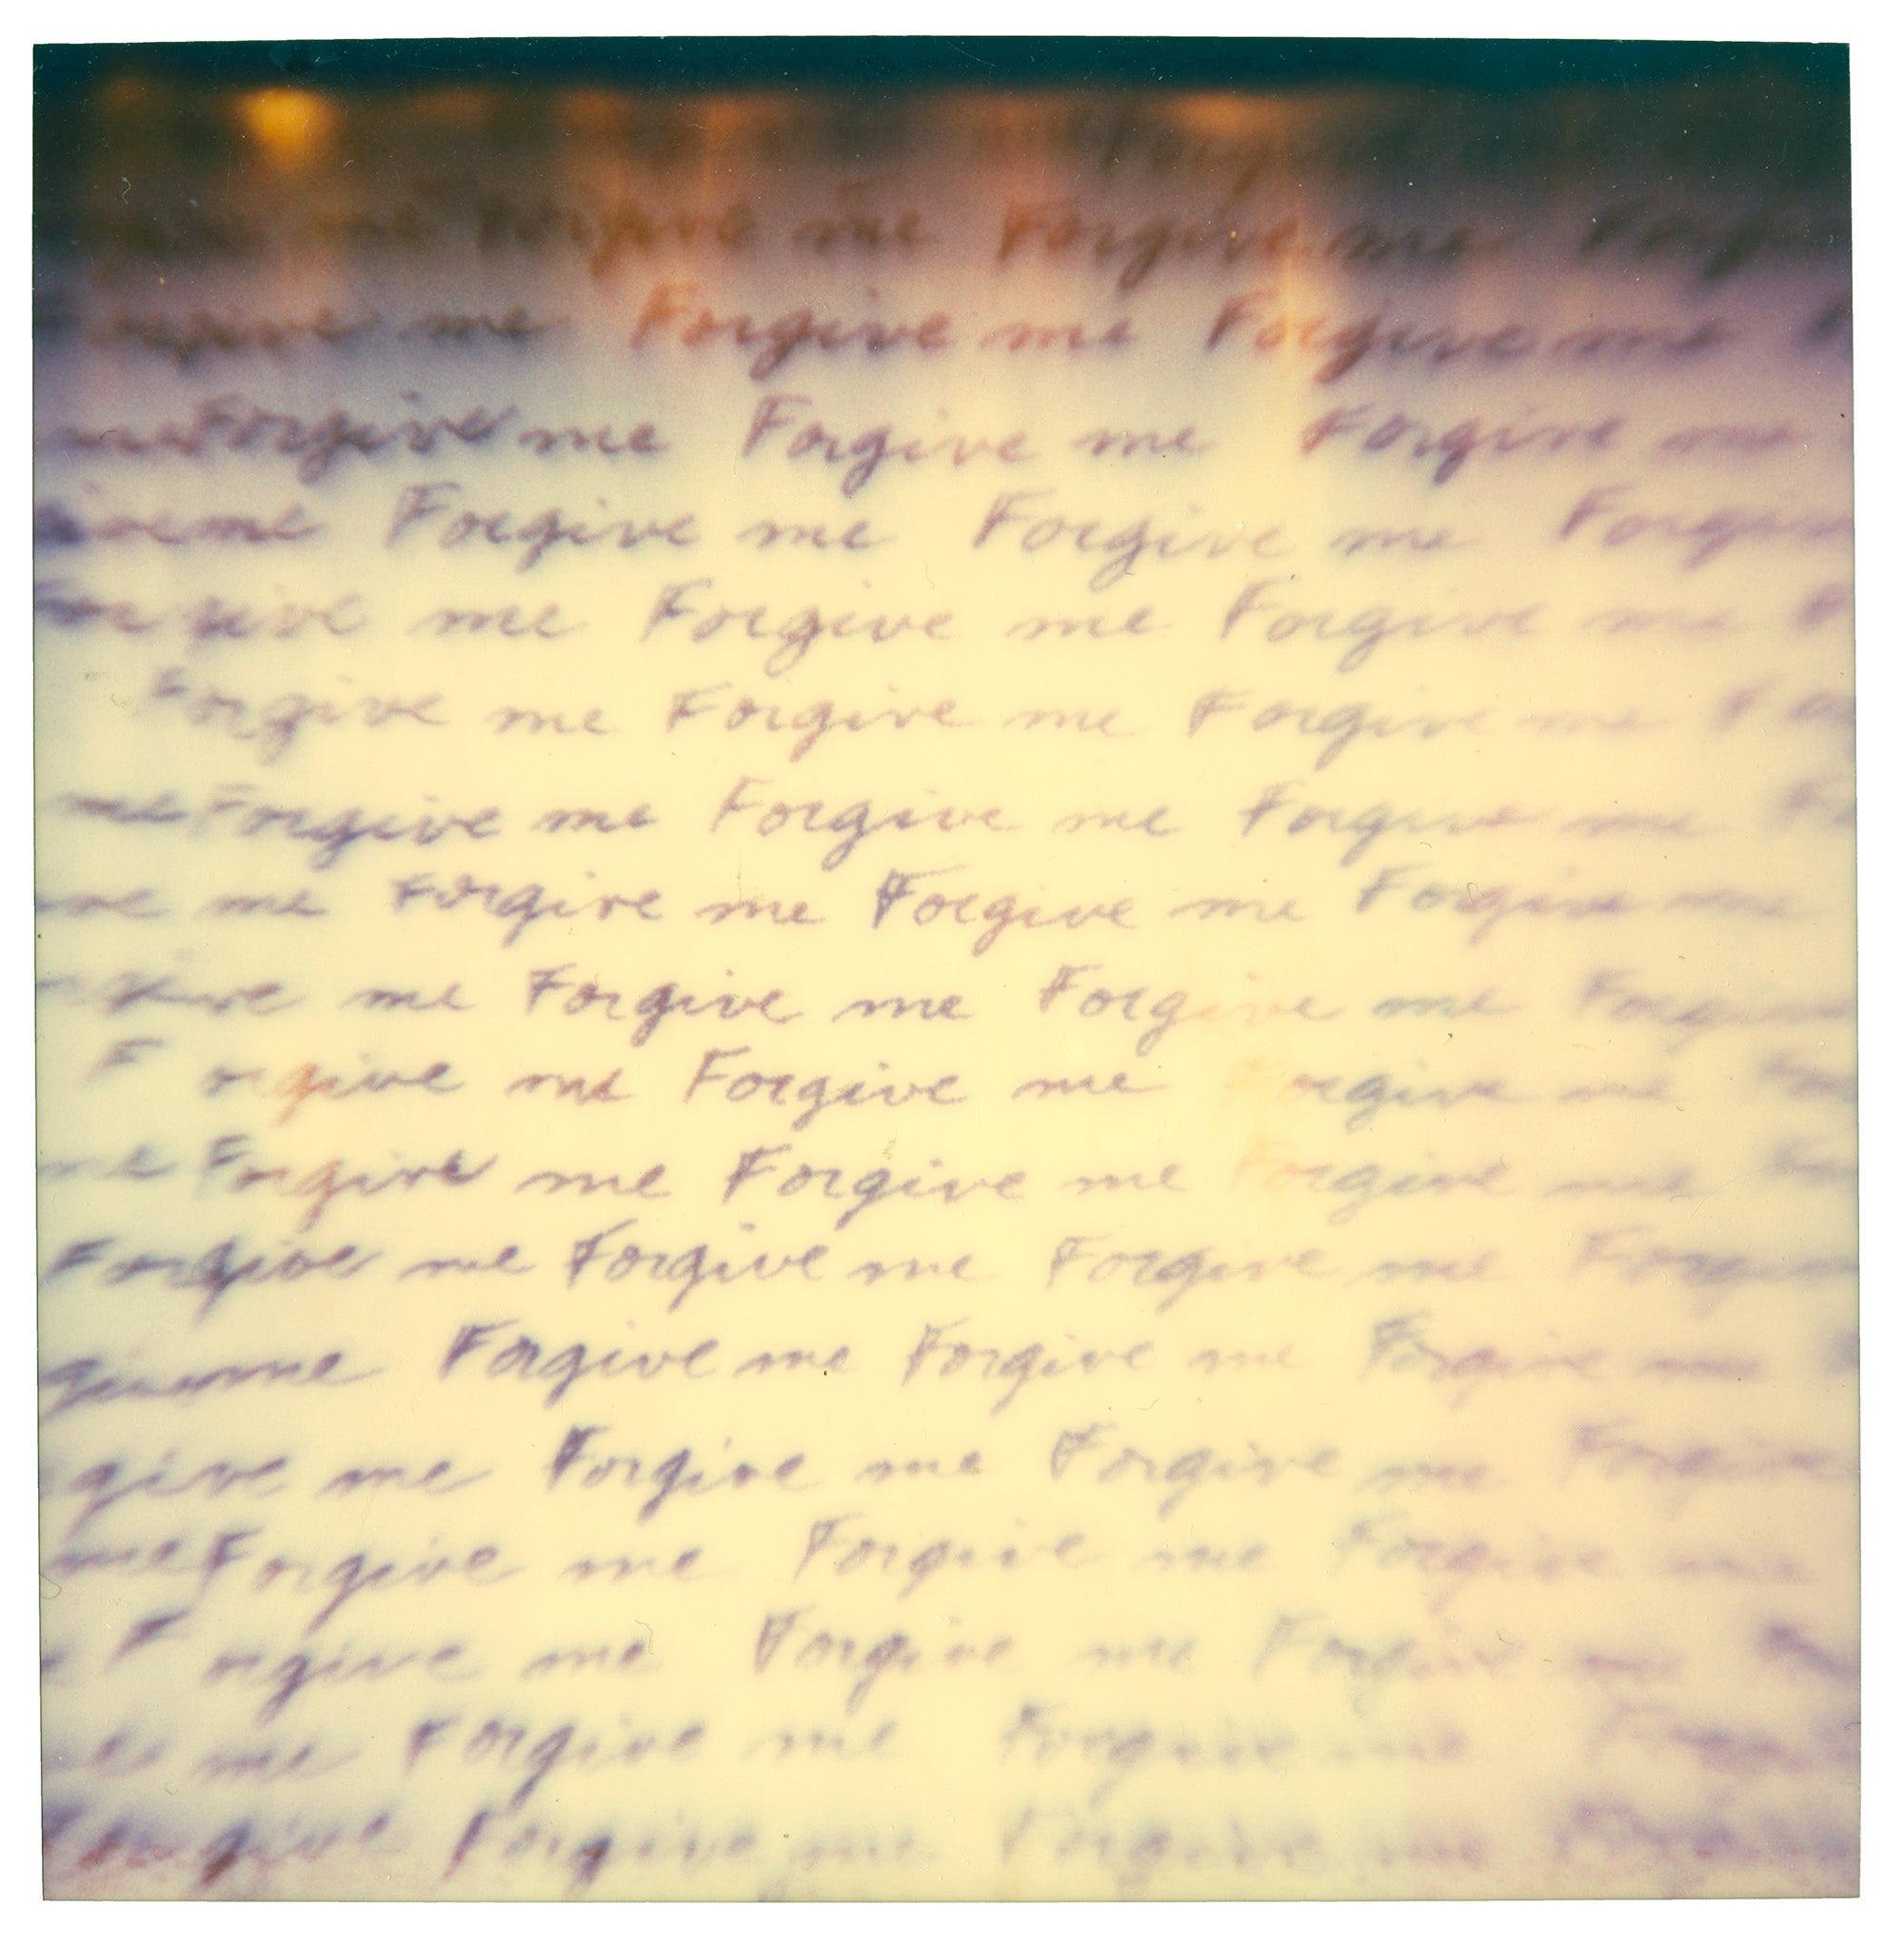 me Forgive me Forgive me
me Forgive me Forgive me
me Forgive me Forgive me Forgive me
me Forgive me Forgive me
me Forgive me Forgive me
Forgive me Forgive me Forgive me
me Forgive me Forgive me Forgive me
me Forgive me Forgive me Forgive me
me Forgive me Forgive me
F orgive me Forgive me Forgive me
me Forgive me Forgive me Forgive me
Forgive me Forgive me Forgive me
me Forgive me Forgive me Forgive me
give me Forgive me Forgive me Forgive
me Forgive me Forgive me Forgive me
F orgive me Forgive me Forgive me
me Forgive me Forgive me
Forgive Forgive me Forgive me